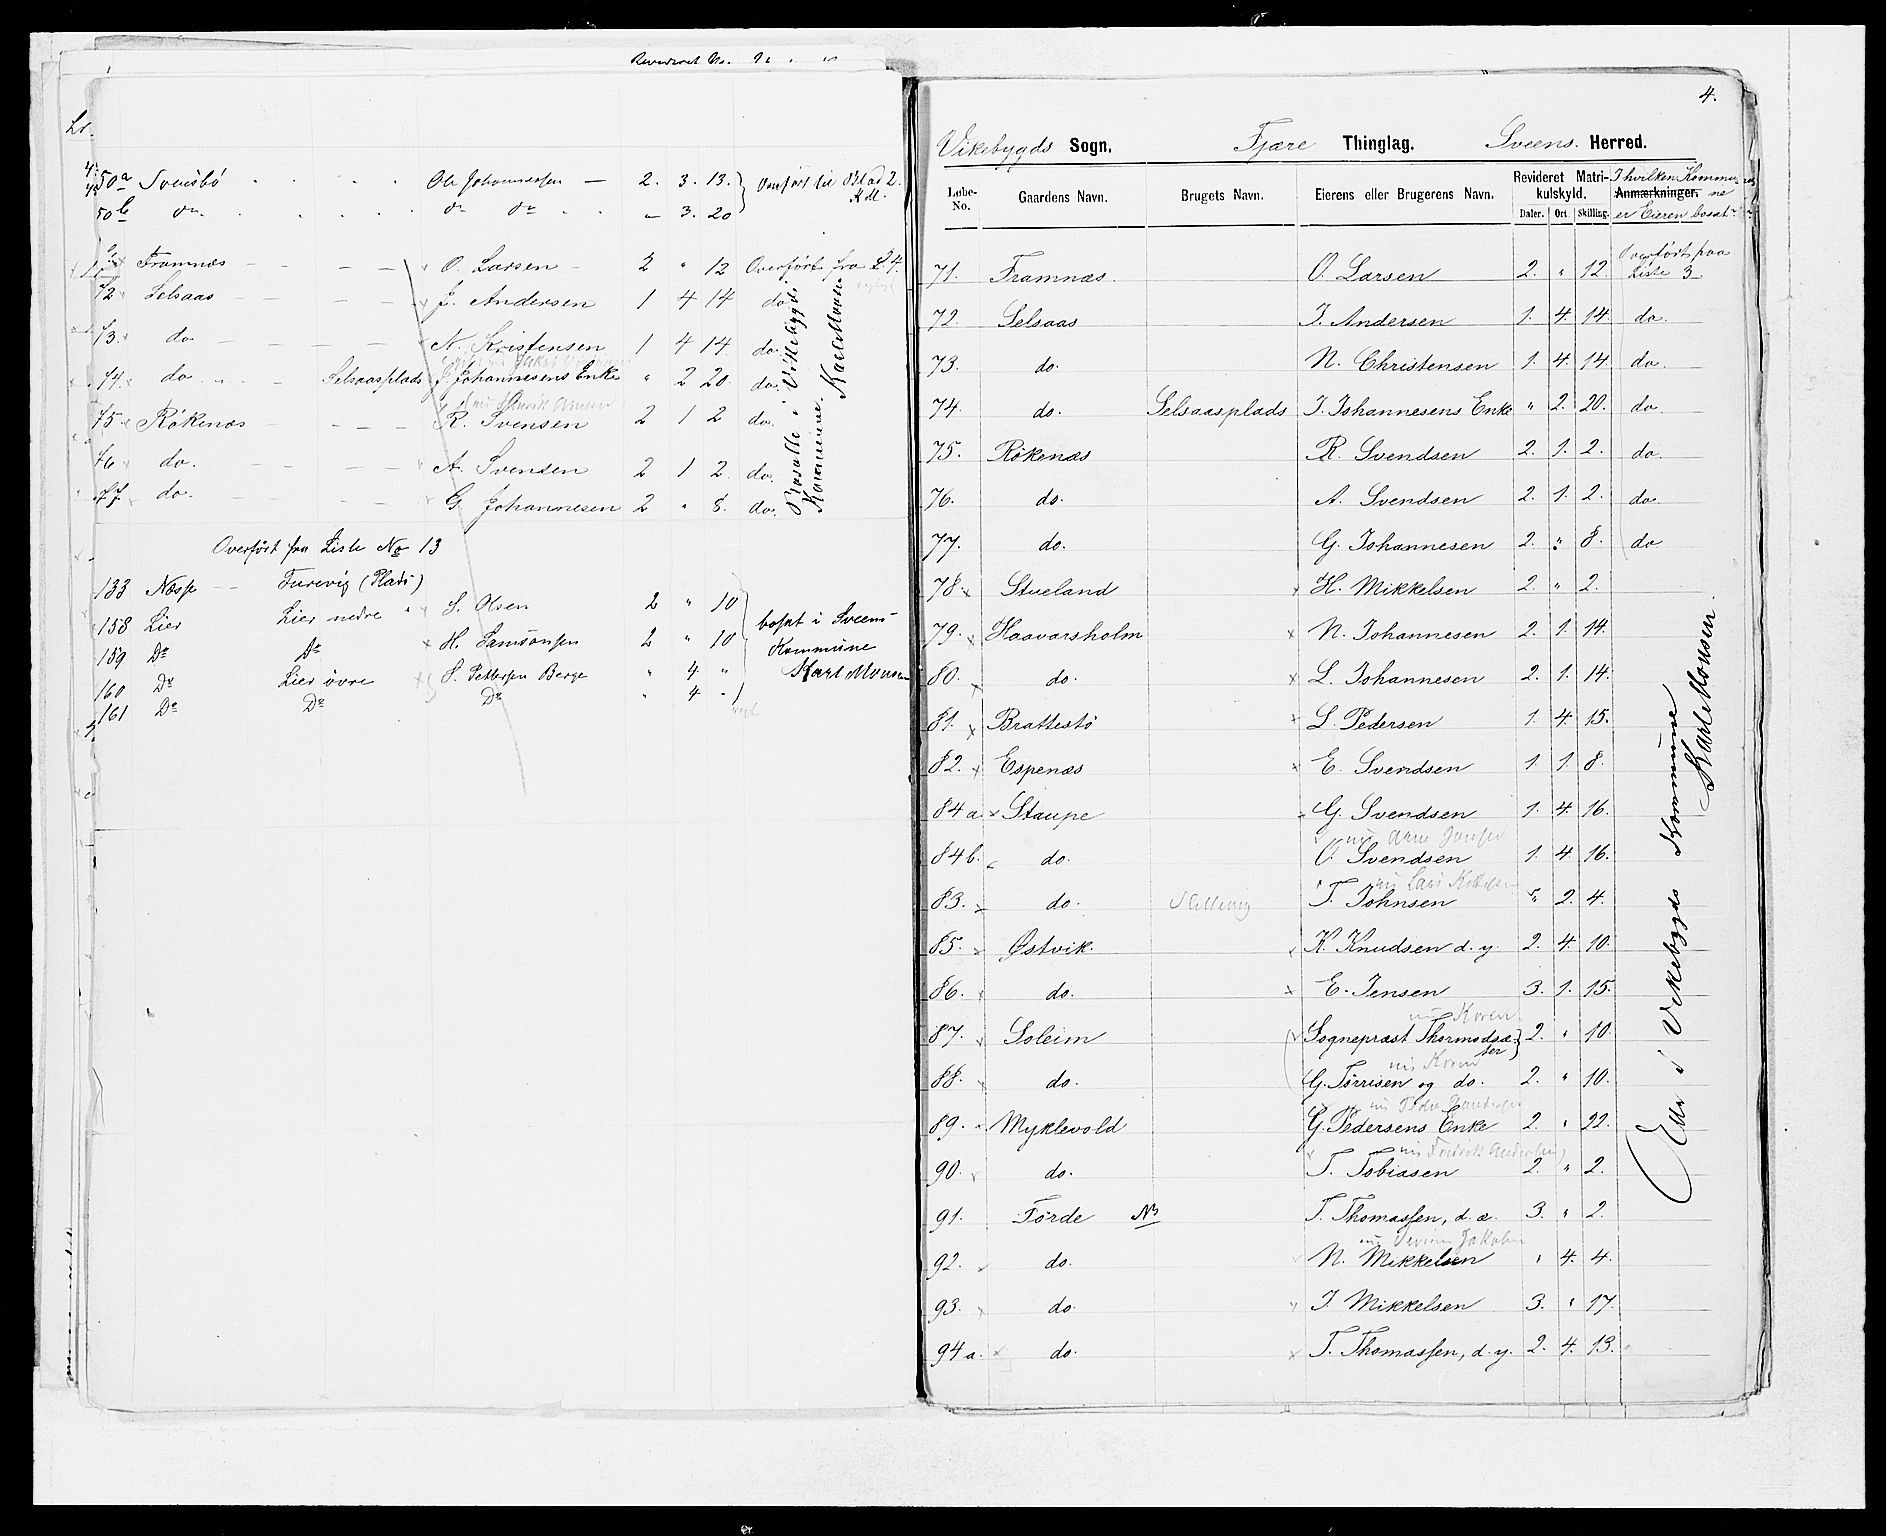 Revideret No.
50a Svensbö Ole Johannessen — 2. 3. 13. Overført til Blad 2.
50b do. do do „ 3. 20
Framnæs O. Larsen 2 „ 12 Overført fra L. 4.
72 Selsaas J. Andersen 1 4 14 do
73. do N. Kristensen 1 4 14. do.
74. do. Selsaasplads J. Johannesens Enke „ 2 20. do.
75 Rökenæs R. Svensen 2 1 2 do.
76 do. A. Svensen 2 1 2. do.
77. do. G. Johannesen 2 „ 8. do.
Bosatte i Vikebygds
Kommune. Karl Monsen
Overført fra Liste No 13
133 Næss Furevig (Plads)
158 Lier Lier nedre S. Olsen 2 „ 10
159 Do Do H. Samsonsen 2 „ 10
160 Do Lier övre S. Pettersen Berge „ 4 „
161 Do Do Do „ 4 „
bosat i Sveens
Kommune
Karl Monsen
4.
Vikebygds Sogn. Fjære Thinglag. Sveens. Herred.
Løbe-No. Gaardens Navn. Brugets Navn. Eierens eller Brugerens Navn. Revideret Matrikulskyld. Anmærkninger. I hvilken Kommune er Eieren bosat
Daler. Ort. Skilling.
71. Framnæs. O. Larsen 2. „ 12. Overført paa Liste 3
72. Selsaas J. Andersen 1. 4. 14 do.
73. do. N. Christensen 1. 4. 14 do.
74. do. Selsaasplads J. Johannesens Enke „ 2. 20. do.
75. Rökenæs R. Svendsen 2. 1. 2. do.
76. do. A. Svendsen 2. 1. 2. do.
77. do. G. Johannesen 2. „ 8. do
78. Stueland H. Mikkelsen 2. „ 2.
79. Haavarsholm N. Johannesen 2. 1. 14.
80. do. L. Johannesen 2. 1. 14.
81. Brattestö L. Pedersen 1. 4. 15.
82. Espenæs E. Svendsen 1. 1. 8.
84 a. Staupe G. Svendsen 1. 4. 16.
84 b. do. O. Svendsen 1. 4. 16.
83. do. T. Johnsen „ 2. 4.
85. Østvik. K. Knudsen d. y. 2. 4. 10.
86. do. E. Jensen 3. 1. 15.
87. Soleim Sognepræst Thormodsæter 2. „ 10.
88. do. G. Tørrisen og do. 2. „ 10.
89. Myklevold G. Pedersens Enke 2. „ 22.
nu Fredrik Andersen
90. do. T. Tobiasen 2. „ 2.
91. Førde NB T. Thomassen, d. æ. 3. „ 2.
92. do. N. Mikkelsen „ 4. 4.
93. do. J. Mikkelsen 3. „ 17.
94 a. do. T. Thomassen, d. y. 2. 4. 13.
Alle i Vikebygds Kommune
Karl Monsen.